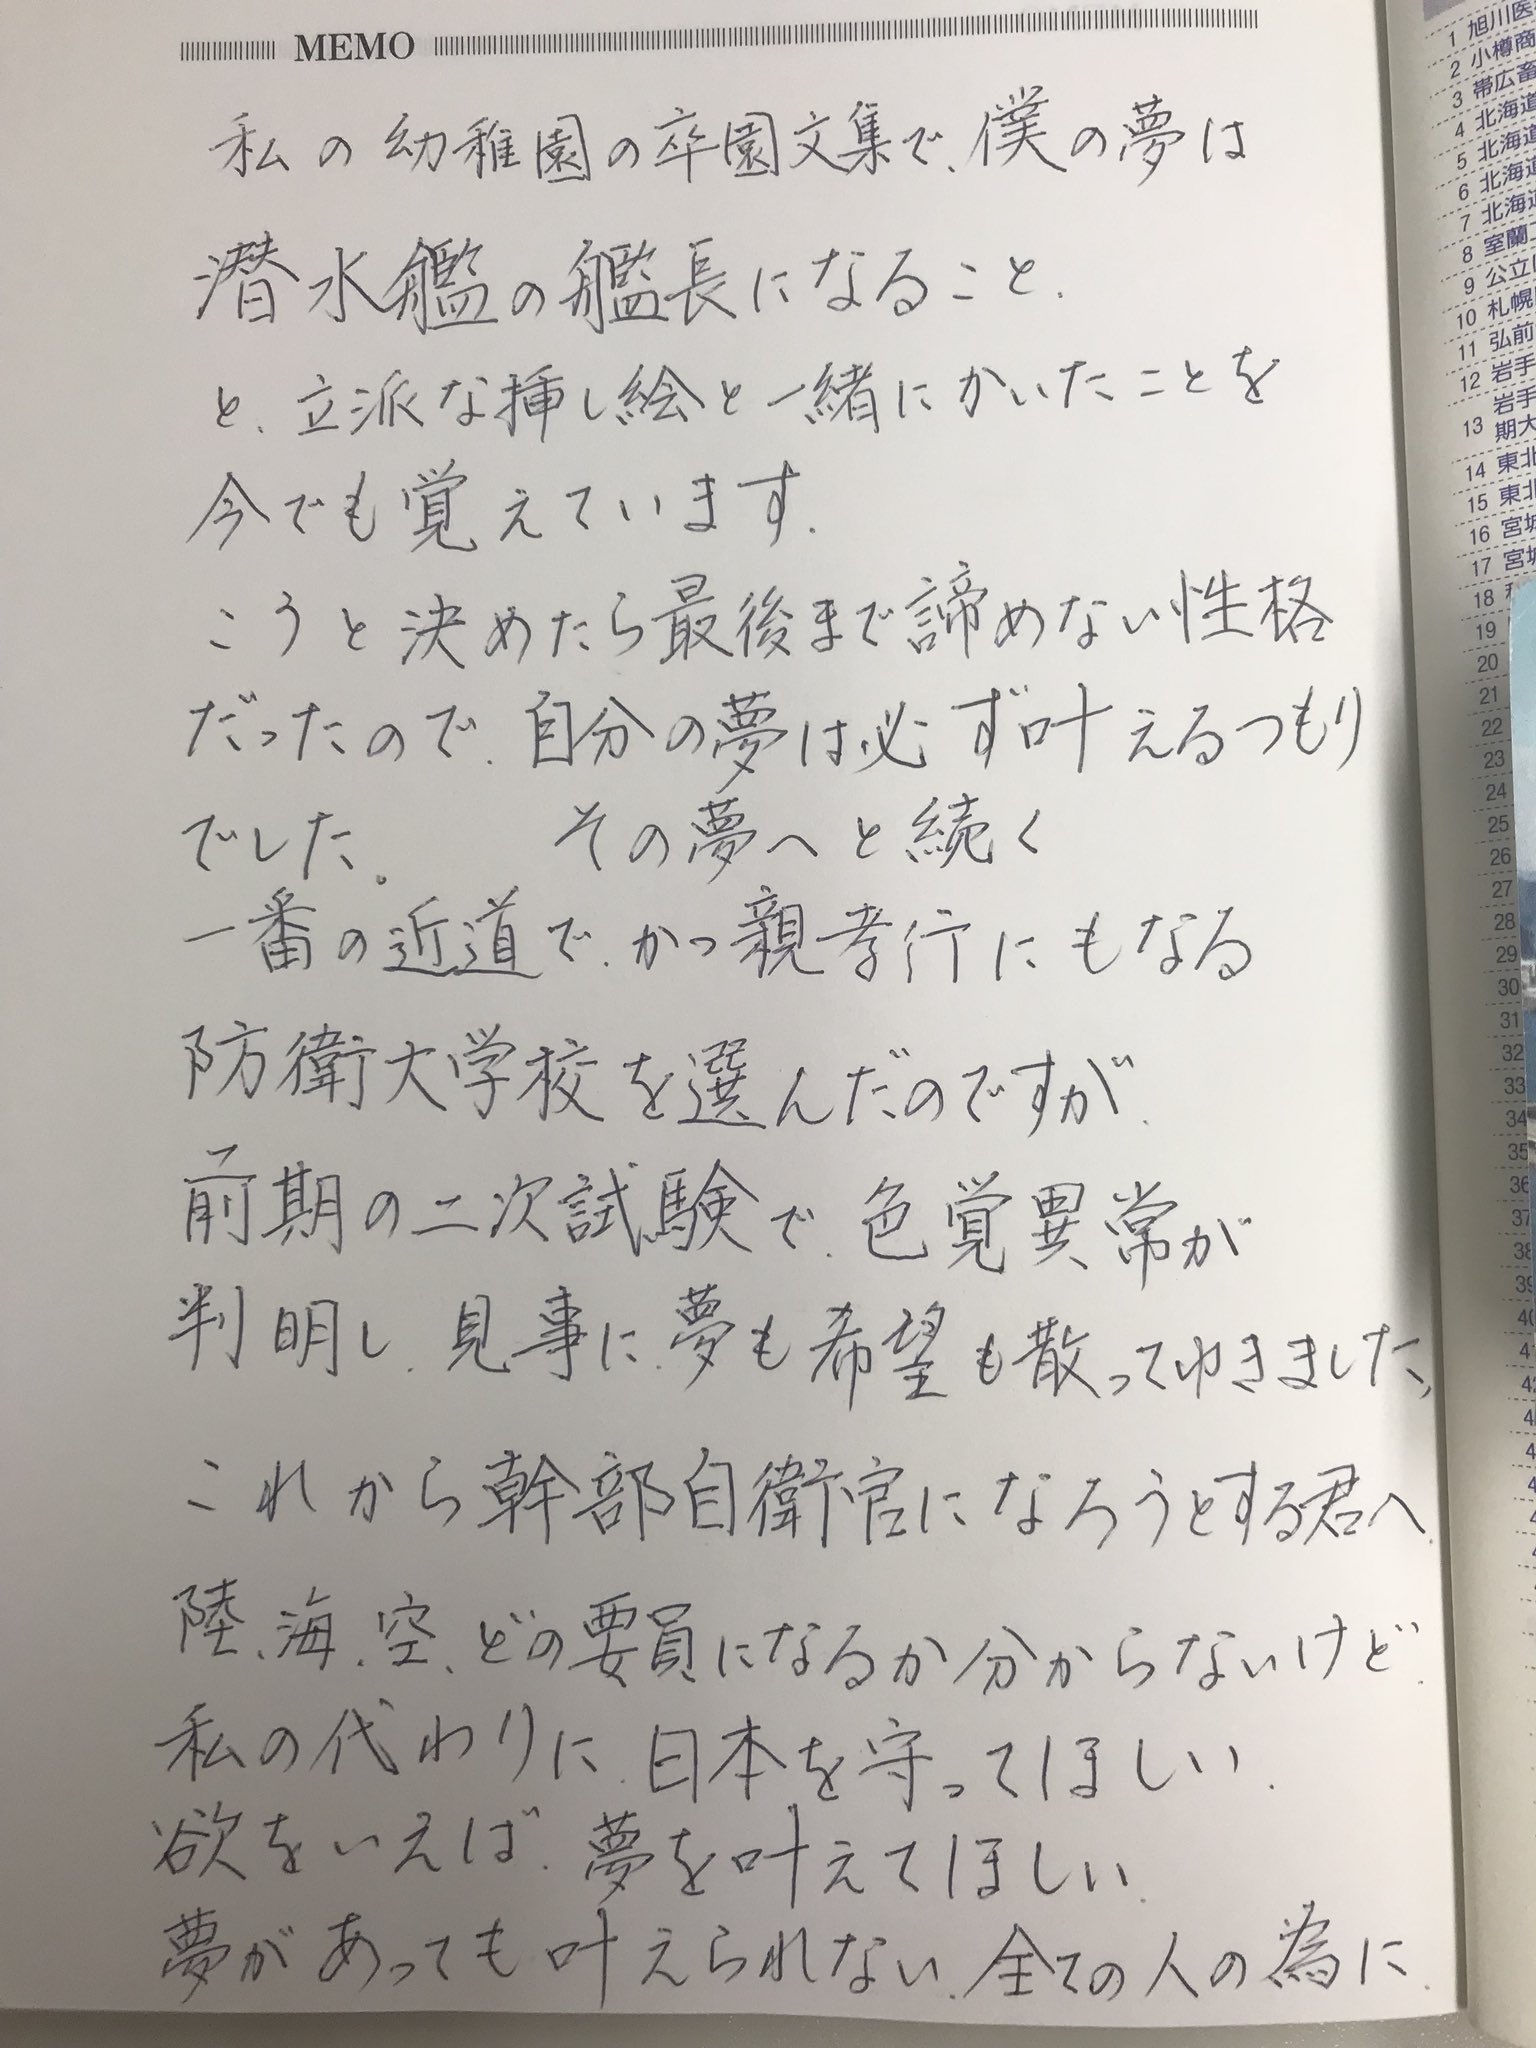 MEMO
私の幼稚園の卒園文集で、僕の夢は
潜水艦の艦長になること、
と、立派な挿し絵と一緒にかいたことを
今でも覚えています.
こうと決めたら最後まで諦めない性格
だったので、自分の夢は必ず叶えるつもり
でした。　その夢へと続く
一番の近道で、かつ親孝行にもなる
防衛大学校を選んだのですが、
前期の二次試験で、色覚異常が
判明し、見事に、夢も希望も散ってゆきました、
これから幹部自衛官になろうとする君へ、
陸、海、空、どの要員になるか分からないけど、
私の代わりに、日本を守ってほしい、
欲をいえば、夢を叶えてほしい、
夢があっても叶えられない、全ての人の為に、
1 旭川医
2 小樽商
3 帯広畜
4 北海道
5 北海道
6 北海道
7 北海道
8 室蘭工
9 公立
10 札幌
11 弘前
12 岩手
13 岩手
期大
14 東北
15 東北
16 宮城
17 宮城
18
19
20
21
22
23
24
25
26
27
28
29
30
31
32
33
34
35
36
37
38
39
40